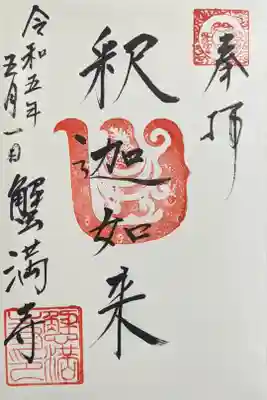 奉拝
釈迦如来
令和五年
五月一日
蟹満寺